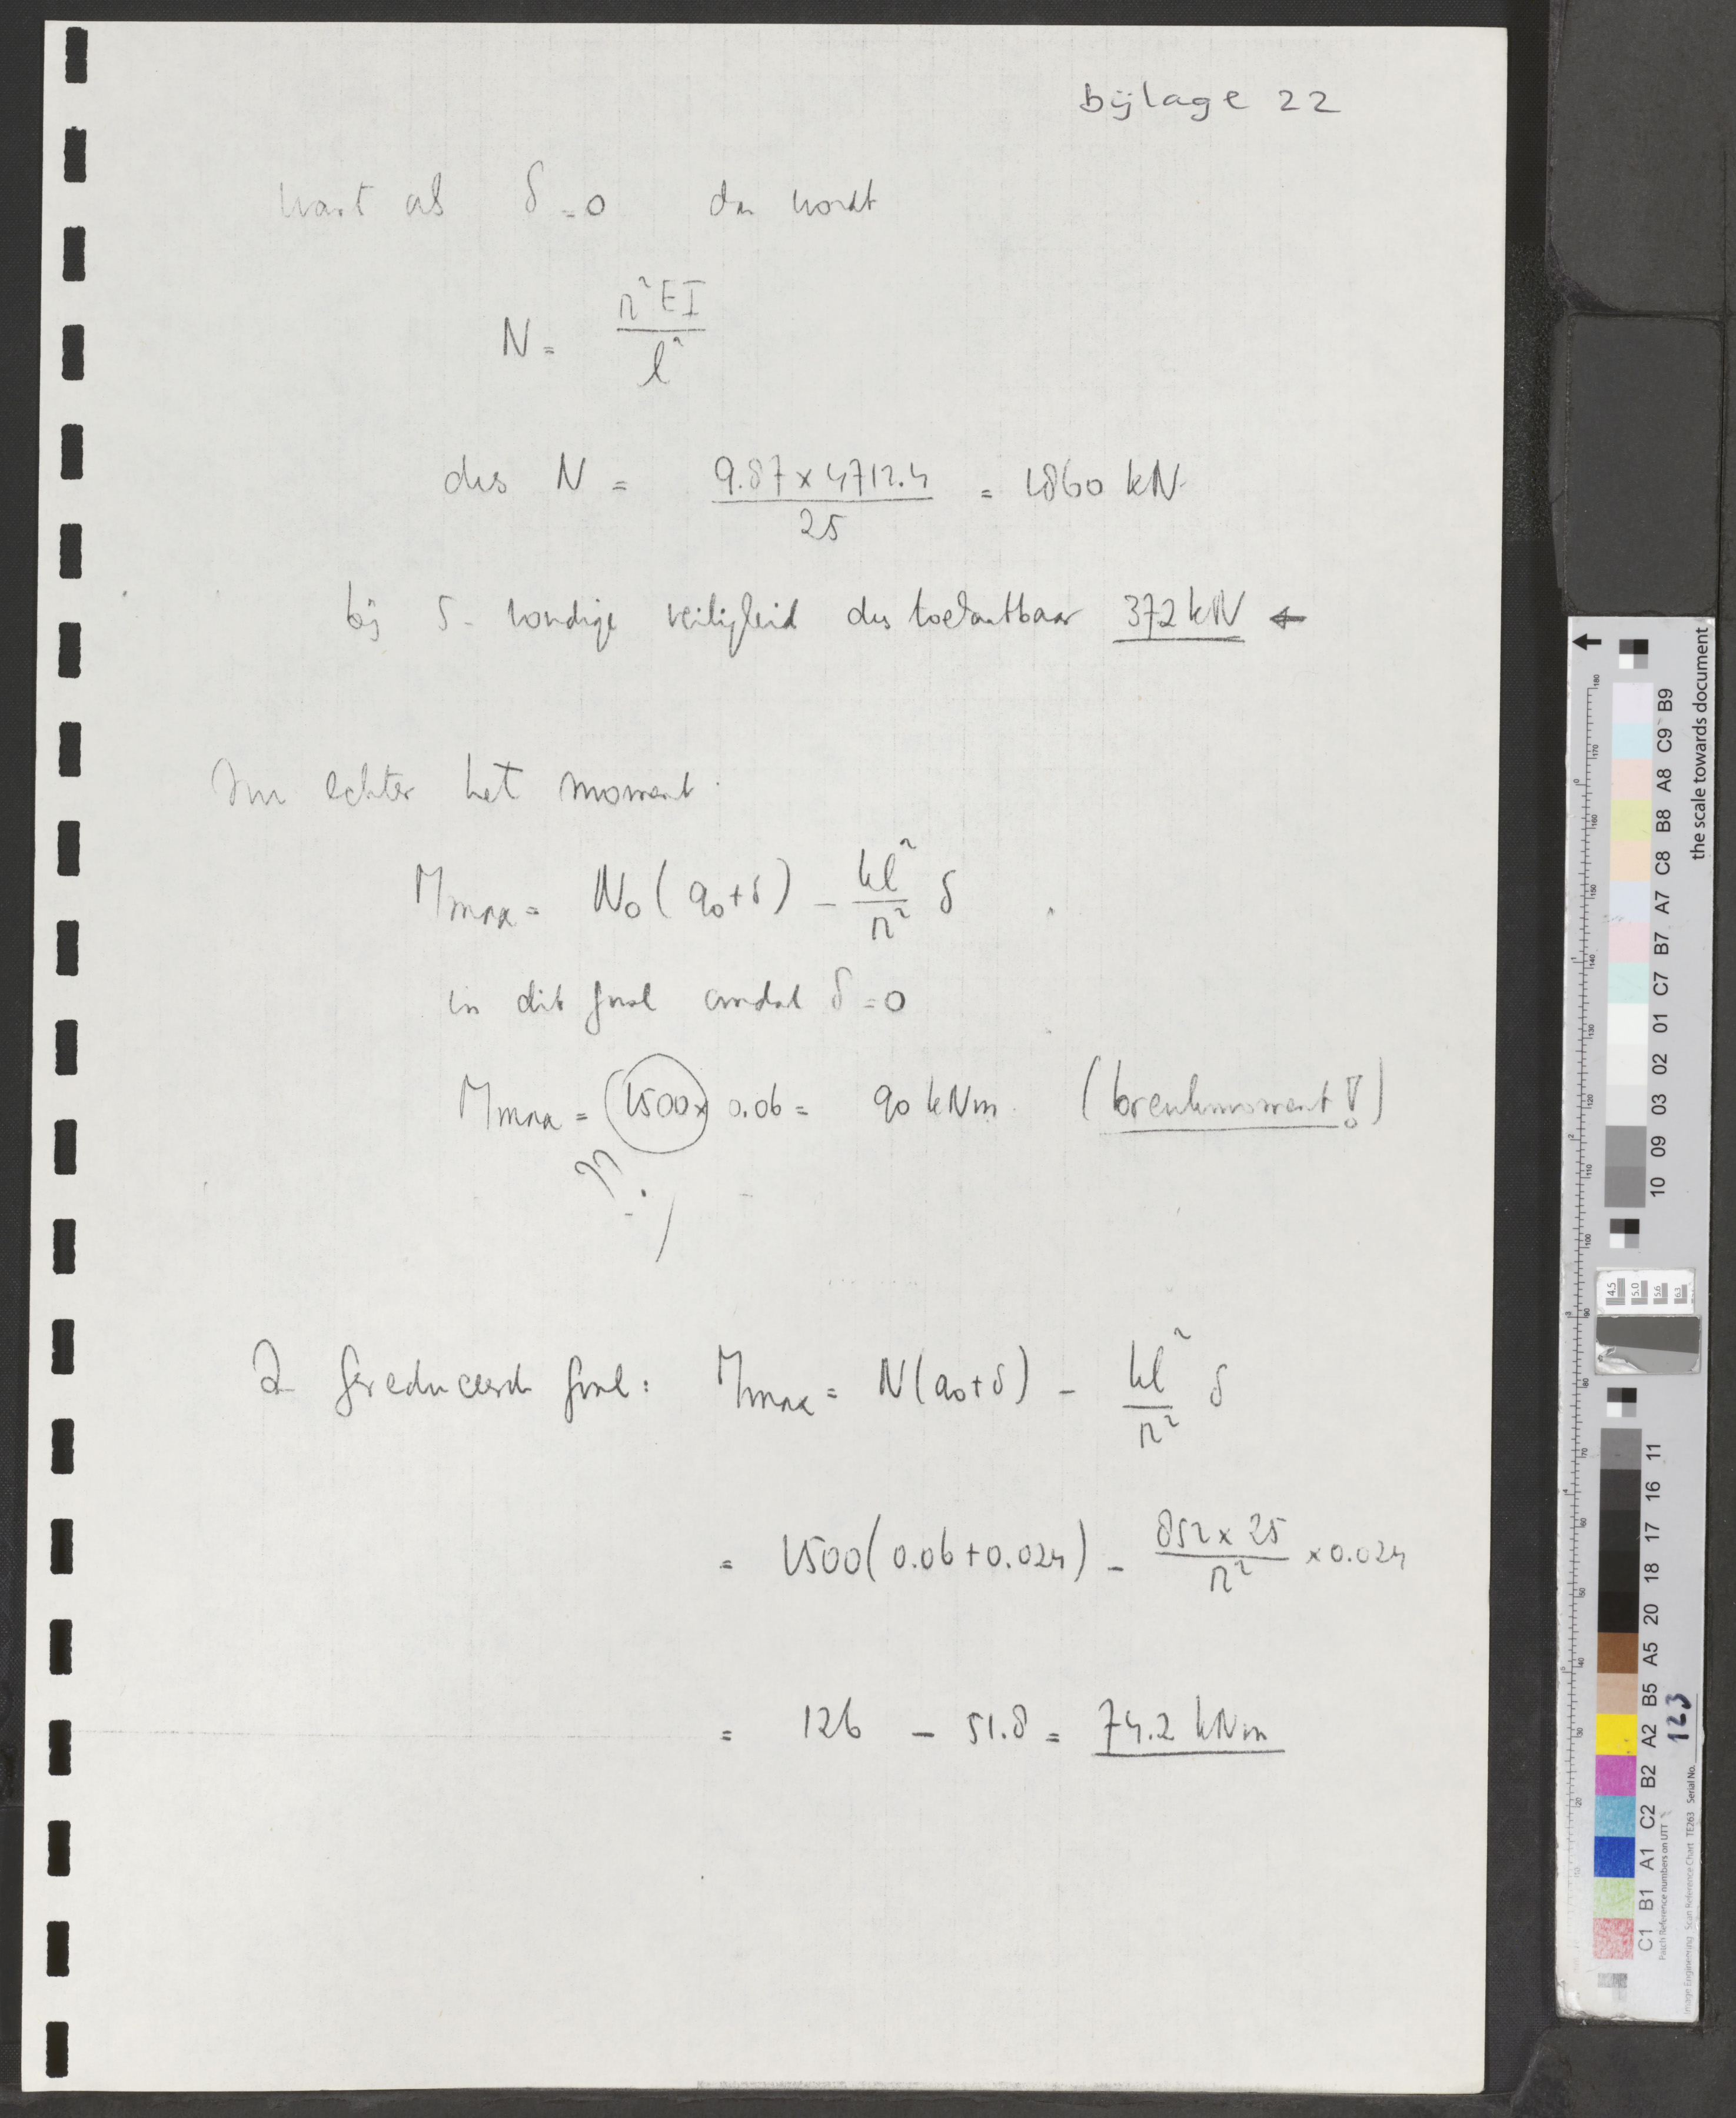 bijlage 22
want als δ = 0 dan wordt
N = π² EI / l²
dus N = 9.87 x 4712.4 / 25 = 1860 kN.
bij 5 - voudige veiligheid dus toelaatbaar 372 kN ←
echter het moment.
Mmax = N₀ ( a₀ + δ ) - kl² / π² δ
in dit geval omdat δ = 0
Mmax = (1500 x 0.06 = 90 kNm. (breukmoment !)
?? )
In gereduceerde geval : Mmax = N ( a₀ + δ ) - kl² / π² δ
= 1500 ( 0.06 + 0.024 ) - 852 x 25 / π² x 0.024
= 126 - 51.8 = 74.2 kNm
the scale towards document
C1 B1 A1 C2 B2 A2 B5 A5 20 18 17 16 11
10 09 03 02 01 C7 B7 A7 C8 B8 A8 C9 B9
Patch Reference numbers on UTT
Image Engineering Scan Reference Chart TE263 Serial No. 123